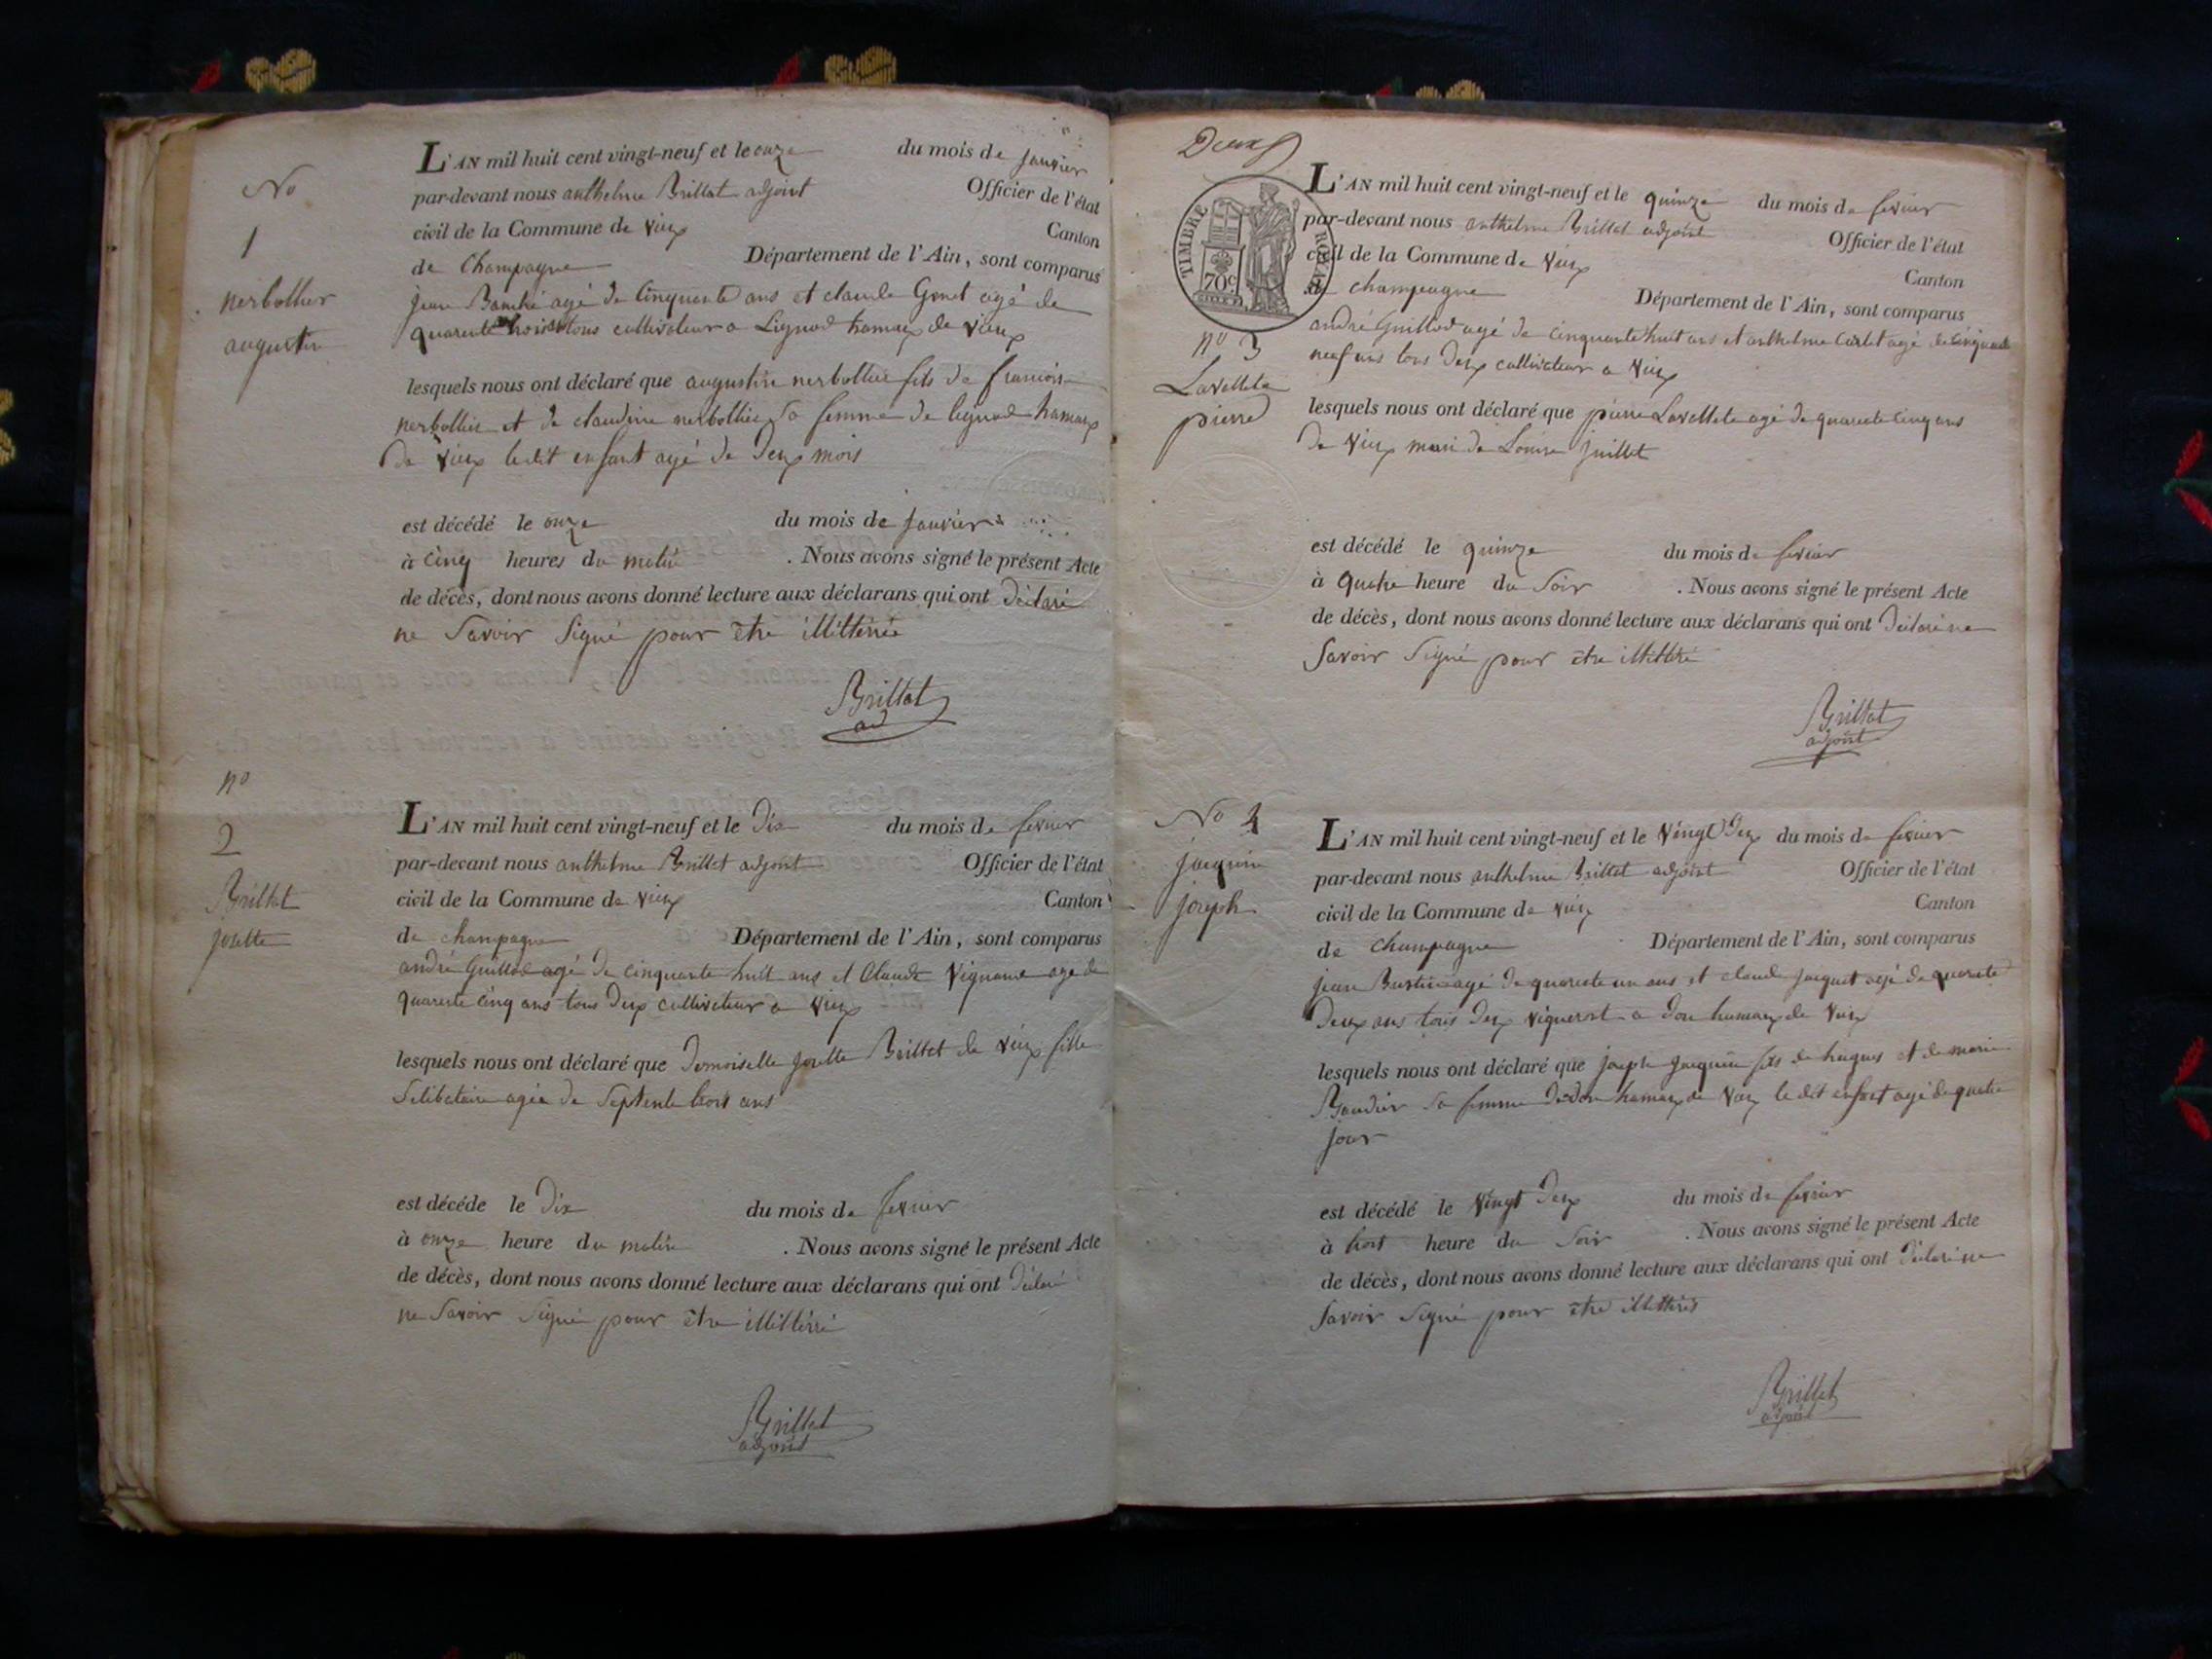 No
1
nerbollier
augustin
L'AN mil huit cent vingt-neuf et le onze du mois de janvier
par-devant nous anthelme Brillat adjoint Officier de l'état
civil de la Commune de Vieu Canton
de Champagne Département de l'Ain, sont comparus
jean agé de Cinquante ans et claude agé de
quarente trois tous cultivateur a Lignod hamaux de Vieux
lesquels nous ont déclaré que augustin nerbollier fils de francois
nerbollier et de claudine nerbollier sa femme de lignod hamaux
de Vieux ledit enfant agé de deux mois
est décédé le onze du mois de janvier
à Cinq heures du matin . Nous avons signé le présent Acte
de décès, dont nous avons donné lecture aux déclarans qui ont déclaré
ne Savoir Signé pour être illittéré
Brillat
ad
no
2
Brillat
josette
L'AN mil huit cent vingt-neuf et le Dix du mois de fevrier
par-devant nous anthelme Brillat adjoint Officier de l'état
civil de la Commune de Vieux Canton
de champagne Département de l'Ain, sont comparus
andré Guillod agé de cinquante huit ans et Claude agé de
quarente cinq ans tous deux cultivateur a Vieux
lesquels nous ont déclaré que Demoiselle josette Brillat de Vieux fille
Selibataire agée de Septente trois ans
est décéde le Dix du mois de fevrier
à onze heure du matin . Nous avons signé le présent Acte
de décès, dont nous avons donné lecture aux déclarans qui ont déclaré
ne Savoir Signé pour être illittéré
Brillat
adjoint
Deux
TIMBRE ROYAL
70c
no 3
Lavellete
pierre
L'AN mil huit cent vingt-neuf et le quinze du mois de fevrier
par-devant nous anthelme Brillat adjoint Officier de l'état
civil de la Commune de Vieux Canton
de champagne Département de l'Ain, sont comparus
andré Guillod agé de cinquante huit ans et anthelme agé de cinquante
neuf ans tous deux cultivateur a Vieux
lesquels nous ont déclaré que pierre Lavellete agé de quarente cinq ans
de Vieux mari de Louise juillet
est décédé le quinze du mois de fevrier
à quatre heure du Soir . Nous avons signé le présent Acte
de décès, dont nous avons donné lecture aux déclarans qui ont déclaré ne
Savoir Signé pour être illittéré
Brillat
adjoint
No 4
jacquin
joseph
L'AN mil huit cent vingt-neuf et le Vingt deux du mois de fevrier
par-devant nous anthelme Brillat adjoint Officier de l'état
civil de la Commune de Vieux Canton
de champagne Département de l'Ain, sont comparus
jean agé de quarente un ans et claude jacquet agé de quarente
Deux ans tous deux vigneront a don hamaux de Vieux
lesquels nous ont déclaré que joseph jacquin fils de hugues et de marie
Baudier sa femme de don hamaux de Vieux le dit enfant agé de quatre
jour
est décédé le Vingt deux du mois de fevrier
à trois heure du Soir . Nous avons signé le présent Acte
de décès, dont nous avons donné lecture aux déclarans qui ont déclaré ne
Savoir Signé pour être illittérés
Brillat
adjoint